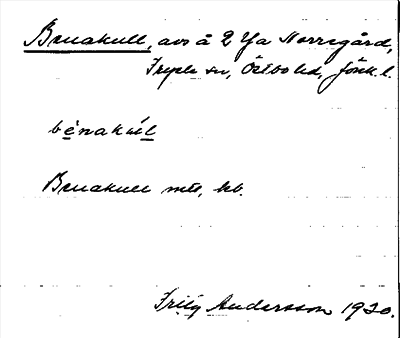 Benakull, avs å 2 Ya Norregård,
Tryple sn, Östbo hd, Jönk. l.
bènakúl
Benakull mtl, kb.
Fritz Andersson 1930.